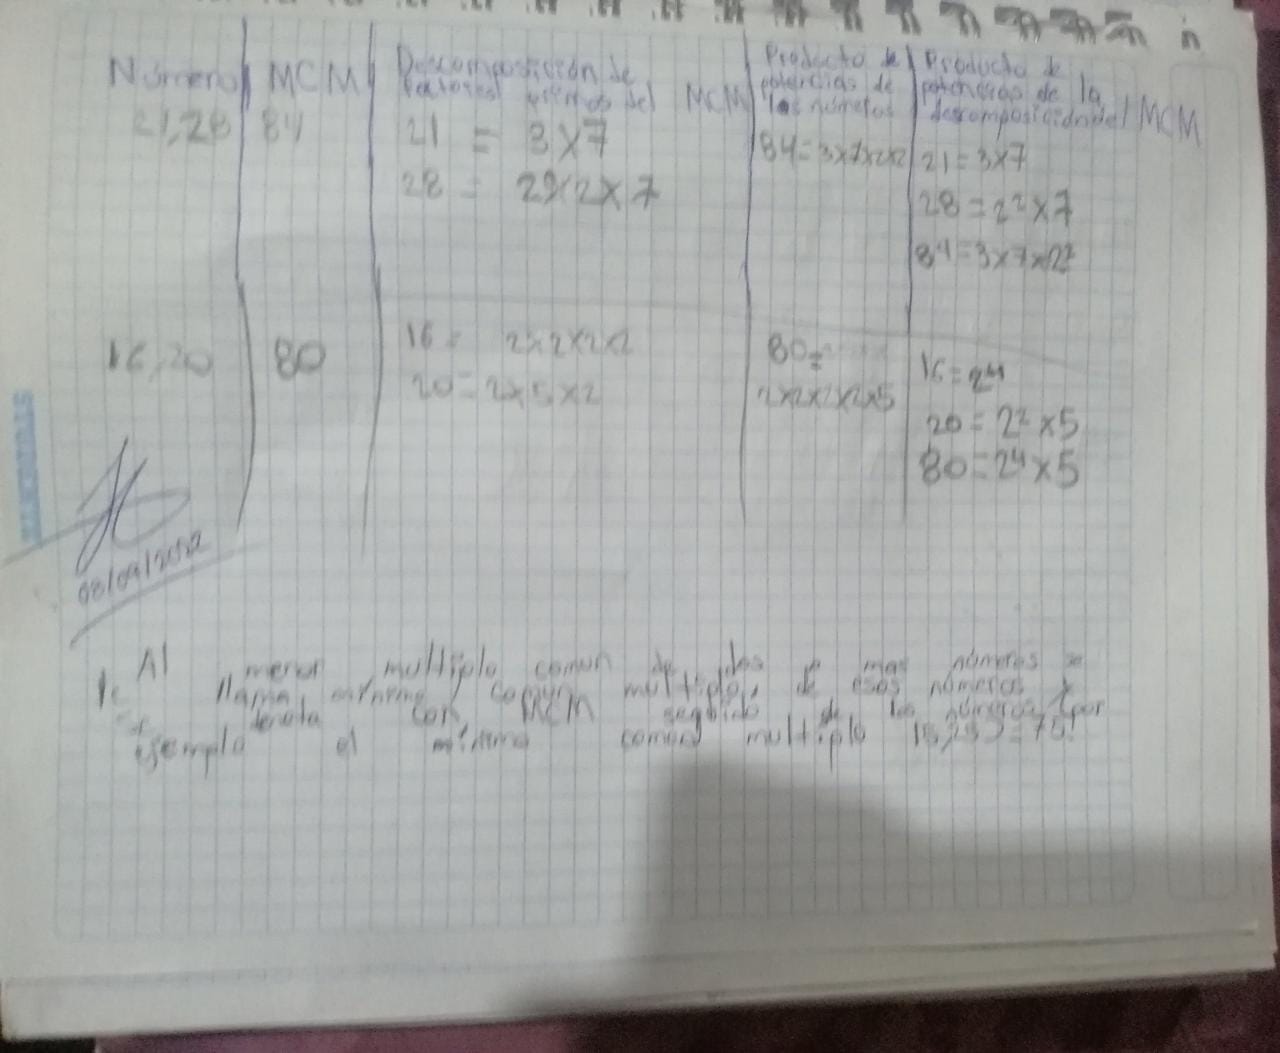 Número MCM Descomposición de factores primos del MCM Producto de potencias de los números Producto de potencias de la descomposición del MCM
21,28 84 21 = 3x7 84=3x7x2x2 21=3x7
28 = 2x2x7 28=2²x7
84=3x7x2²
16,20 80 16= 2x2x2x2 80= 16=2⁴
20=2x5x2 2x2x2x2x5 20=2²x5
80=2⁴x5
08/09/2022
Al menor multiplo comun de dos mas números se
llama mínimo comun multiplo de esos números y
denota con MCM seguido de los números (por
Ejemplo el mínimo comun multiplo 15,25)=75.